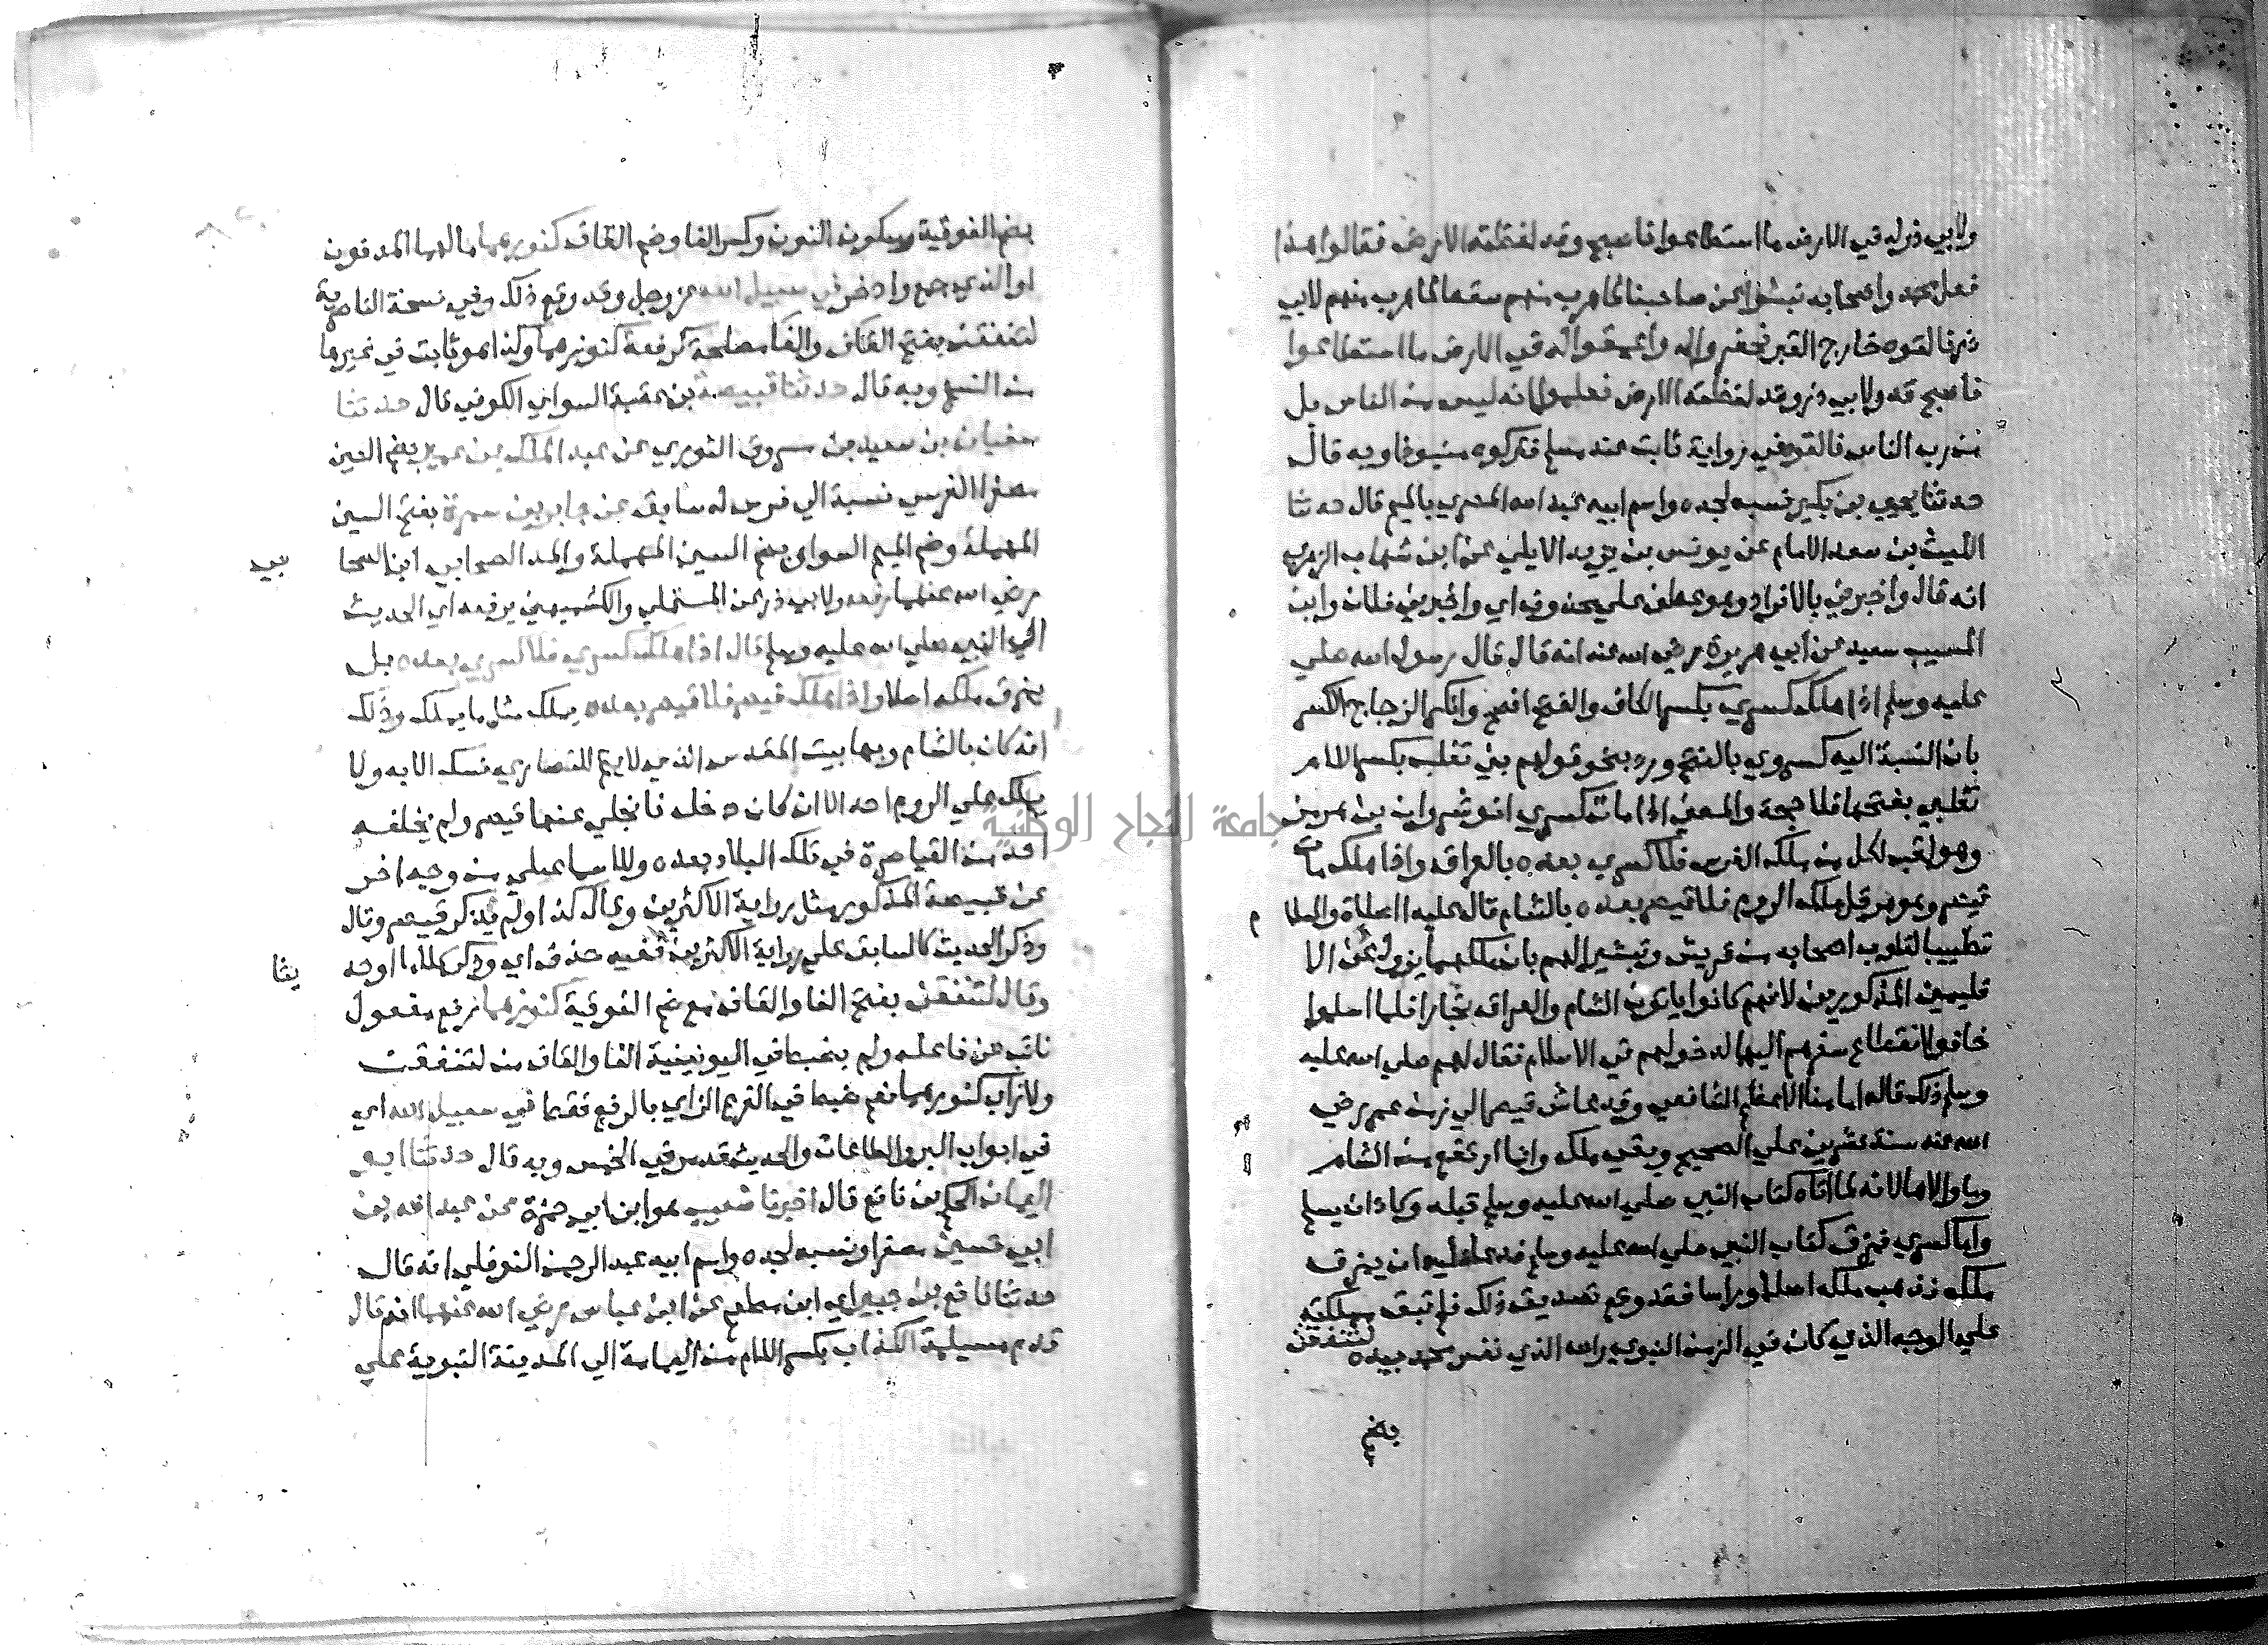 ولابي ذر له في الارض ما استطاعوا فاصبح وقد لفظته الارض فقالوا هذا
فعل محمد واصحابه نبشوا عن صاحبنا لما هرب منهم سقط لما هرب منهم لابي
ذر فالقوه خارج القبر فحفروا له واعمقوا له في الارض ما استطاعوا
فاصبح قد ولابي ذر وقد لفظته الارض فعلموا انه ليس من الناس بل
من رب الناس فالقوه في رواية ثابت عند مسلم فتركوه منبوذا وبه قال
حدثنا يحيي بن بكير نسبه لجده واسم ابيه عبد الله المصري بالميم قال حدثنا
الليث بن سعد الامام عن يونس بن يزيد الايلي عن ابن شهاب الزهري
انه قال واخبرني بالافراد وهو عطف علي محذوف اي واخبرني فلان وابن
المسيب سعيد عن ابي هريرة رضي الله عنه انه قال قال رسول الله صلي
عليه وسلم اذا هلك كسري بكسر الكاف والفتح افصح وانكر الزجاج الكسر
بان النسبة اليه كسروي بالفتح ورد بنحو قولهم بني تغلب بكسر اللام
تغلبي بفتحها فلا حجة والمعني اذا مات كسري انوشروان بن هرمز
وهو لقب لكل من ملك الفرس فلا كسري بعده بالعراق واذا هلك مات
قيصر وهو هرقل ملك الروم فلا قيصر بعده بالشام قاله عليه الصلاة والسلام
تطييبا لقلوب اصحابه من قريش وتبشيرا لهم بان ملكهما يزول عن الا
قليمين المذكورين لانهم كانوا ياتون الشام والعراق تجارا فلما اسلموا
خافوا انقطاع سفرهم اليهما لدخولهم في الاسلام فقال لهم صلي الله عليه
وسلم ذلك قاله امامنا الاعظم الشافعي وقد عاش قيصر الي زمن عمر رضي
الله عنه سنة عشرين علي الصحيح وبقي ملكه وانما ارتفع من الشام
وما والاها لانه لما اتاه كتاب النبي صلي الله عليه وسلم قبله وكاد ان يسلم
واما كسري فمزق كتاب النبي صلي الله عليه وسلم فدعا عليه ان يمزق
ملكه فذهب ملكه اصلا وراسا فقد وقع تصديق ذلك فلم تبق مملكته
علي الوجه الذي كان في الزمن النبوي والله الذي نفس محمد بيده لتنفقن
بضم
بضم الفوقية وسكون النون وكسر الفا وضم القاف كنوزهما مالهما المدفون
او الذي جمع وادخر في سبيل الله عز وجل وقد وقع ذلك وفي نسخة الناصرية
لتنفقن بفتح القاف والفا مصلحة كرفعة كنوزهما وكذا هو ثابت في غيرها
من النسخ وبه قال حدثنا قبيصة بن عقبة السواي الكوفي قال حدثنا
سفيان بن سعيد بن مسروق الثوري عن عبد الملك بن عمير بضم العين
مصغرا الفرسي نسبة الي فرس له سابق عن جابر بن سمرة بفتح السين
المهملة وضم الميم السواي بضم السين المهملة والمد الصحابي ابن الصحا بي
رضي الله عنهما رفعه ولابي ذر عن المستملي والكشميهني يرفعه اي الحديث
الي النبي صلي الله عليه وسلم قال اذا هلك كسري فلا كسري بعده بل
يمزق ملكه اصلا واذا هلك قيصر فلا قيصر بعده يملك مثل ما يملك وذلك
انه كان بالشام وبها بيت المقدس الذي لا يتم للنصاري نسك الا به ولا
يملك علي الروم احد الا ان كان دخله فانجلي عنها قيصر ولم يخلفه
احد من القياصرة في تلك البلاد بعده وللاسماعيلي من وجه اخر
عن قبيصة المذكور مثل رواية الاكثرين وقال كذا ولم يذكر قيصر وقال
وذكر الحديث كالسابق علي رواية الاكثرين ففيه حذف اي وذكر كلاما اوحد يثا
وقال لتنفقن بفتح الفا والقاف مع ضم الفوقية كنوزهما رفع مفعول
نائب عن فاعله ولم يضبط في اليونينية الفا والقاف من لتنفقن
ولا زاي كنوزهما نعم ضبطها في الفرع الزاي بالرفع فقط في سبيل الله اي
في ابواب البر والطاعات والحديث قد مر في الخمس وبه قال حدثنا ابو
اليمان الحكم بن نافع قال اخبرنا شعيب هو ابن ابي حمزة عن عبد الله بن
ابي حسين مصغرا ونسبه لجده واسم ابيه عبد الرحمن النوفلي انه قال
حدثنا نافع بن جبير اي ابن مطعم عن ابن عباس رضي الله عنهما انه قال
قدم مسيلمة الكذاب بكسر اللام من اليمامة الي المدينة النبوية علي
جامعة النجاح الوطنية